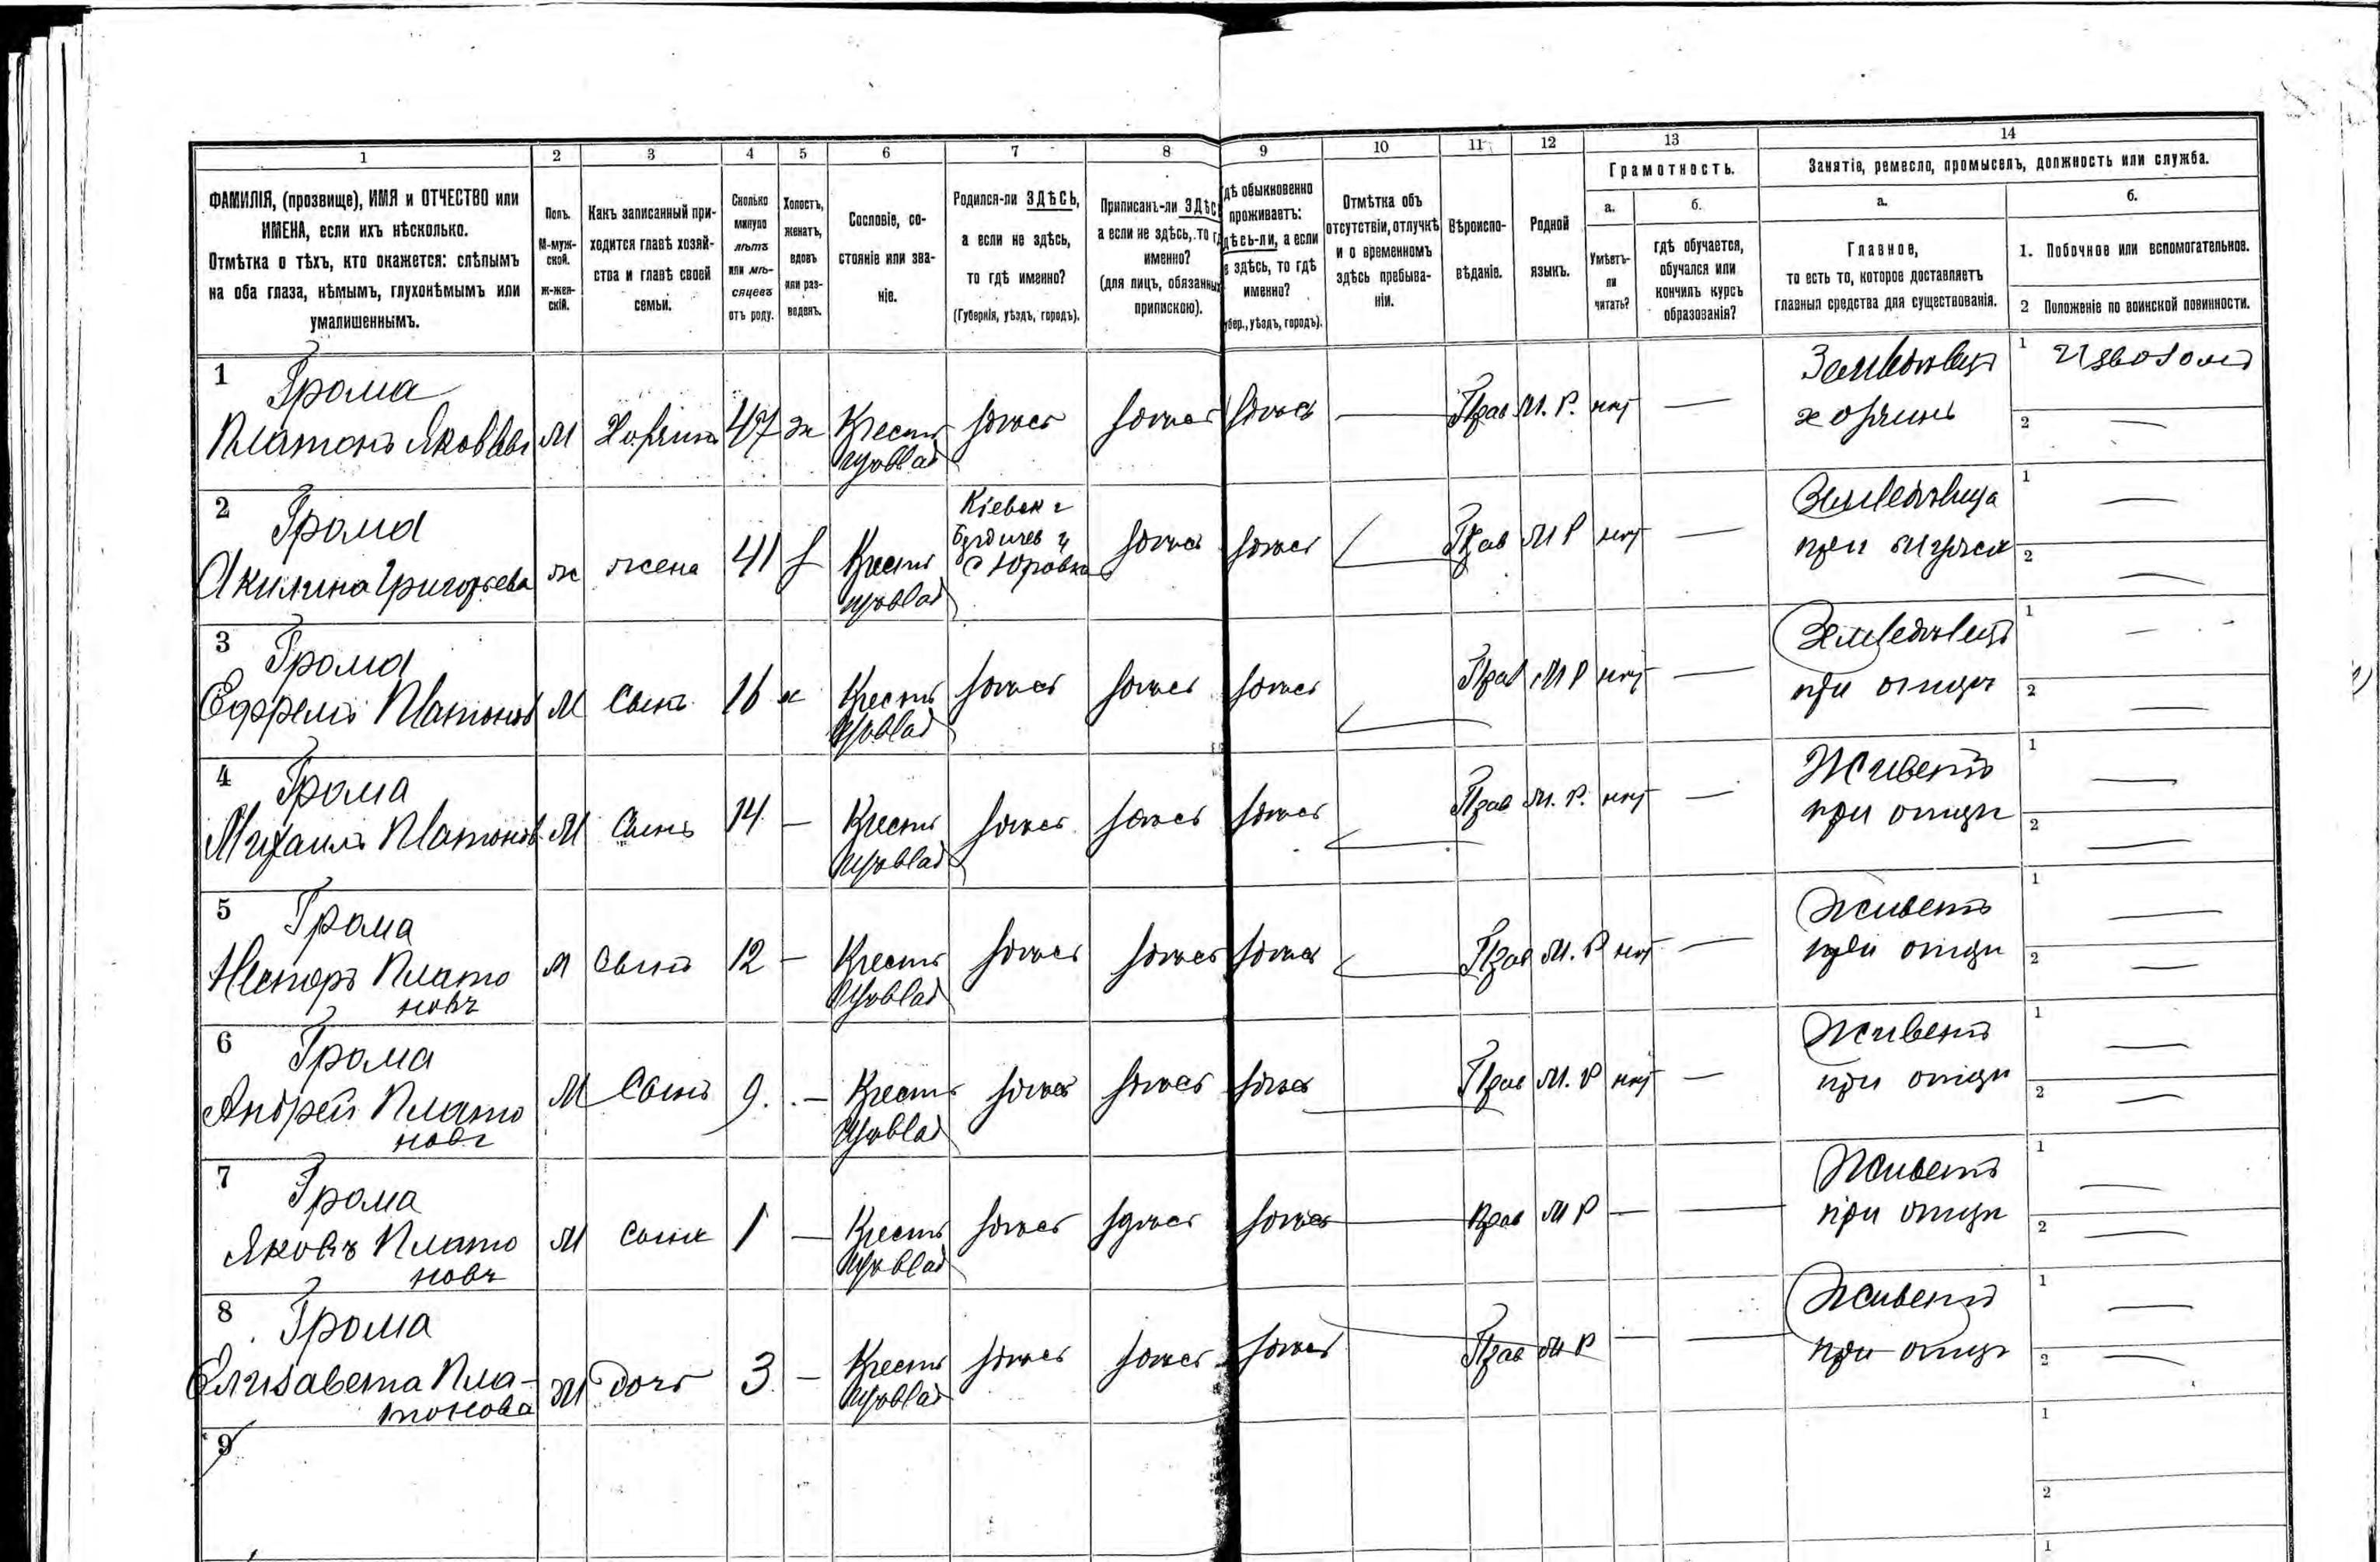 1 2 3 4 5 6 7 8 9 10 11 12 13 14
ФАМИЛІЯ, (прозвище), ИМЯ и ОТЧЕСТВО или
ИМЕНА, если ихъ нѣсколько.
Отмѣтка о тѣхъ, кто окажется: слѣпымъ
на оба глаза, нѣмымъ, глухонѣмымъ или
умалишеннымъ.
Полъ.
М-муж-
ской.
ж-жен-
скій.
Какъ записанный при-
ходится главѣ хозяй-
ства и главѣ своей
семьи.
Сколько
минуло
лѣтъ
или мѣ-
сяцевъ
отъ роду.
Холостъ,
женатъ,
вдовъ
или раз-
веденъ.
Сословіе, со-
стояніе или зва-
ніе.
Родился-ли ЗДѢСЬ,
а если не здѣсь,
то гдѣ именно?
(Губернія, уѣздъ, городъ).
Приписанъ-ли ЗДѢС
а если не здѣсь, то г
именно?
(для лицъ, обязанных
припискою).
дѣ обыкновенно
проживаетъ:
дѣсь-ли, а если
е здѣсь, то гдѣ
именно?
убер., уѣздъ, городъ).
Отмѣтка объ
отсутствіи, отлучкѣ
и о временномъ
здѣсь пребыва-
ніи.
Вѣроиспо-
вѣданіе.
Родной
языкъ.
Грамотность.
а.
Умѣетъ-
ли
читать?
б.
гдѣ обучается,
обучался или
кончилъ курсъ
образованія?
Занятіе, ремесло, промыселъ, должность или служба.
а.
Главное,
то есть то, которое доставляетъ
главныя средства для существованія.
б.
1. Побочное или вспомогательное.
2 Положеніе по воинской повинности.
1 Грома
Платонъ Яковлевъ
М
Хозяинъ
47
ж
Крестьян
здѣсь
здѣсь
здѣсь
—
Прав
М. Р.
нѣт
—
хозяинъ
1 Извозомъ
2 —
2 Грома
Акилина Григорьева
ж
жена
41
з
Крестьян
Кіевск г
Бердичев у
с Юровка
здѣсь
здѣсь
—
Прав
М Р
нѣт
—
при мужѣ
1 —
2 —
3 Грома
Ефремъ Платоновъ
М
Сынъ
16
х
Крестьян
здѣсь
здѣсь
здѣсь
—
Прав
М Р
нѣт
—
Земледѣлецъ
при отцѣ
1 —
2 —
4 Грома
Михаилъ Платоновъ
М
Сынъ
14
—
Крестьян
здѣсь
здѣсь
здѣсь
—
Прав
М. Р.
нѣт
—
Живетъ
при отцѣ
1 —
2 —
5 Грома
Несторъ Плато
новъ
М
Сынъ
12
—
Крестьян
здѣсь
здѣсь
здѣсь
—
Прав
М. Р
нѣт
—
Живетъ
при отцѣ
1 —
2 —
6 Грома
Андрей Плато
новъ
М
Сынъ
9.
—
Крестьян
здѣсь
здѣсь
здѣсь
—
Прав
М. Р
нѣт
—
Живетъ
при отцѣ
1 —
2 —
7 Грома
Яковъ Плато
новъ
М
Сынъ
1
—
Крестьян
здѣсь
здѣсь
здѣсь
—
Прав
М Р
—
—
Живетъ
при отцѣ
1 —
2 —
8 Грома
Елизавета Пла-
тонова
Ж
дочь
3
—
Крестьян
здѣсь
здѣсь
здѣсь
—
Прав
М Р
—
—
Живетъ
при отцѣ
1 —
2 —
9
1
2
1